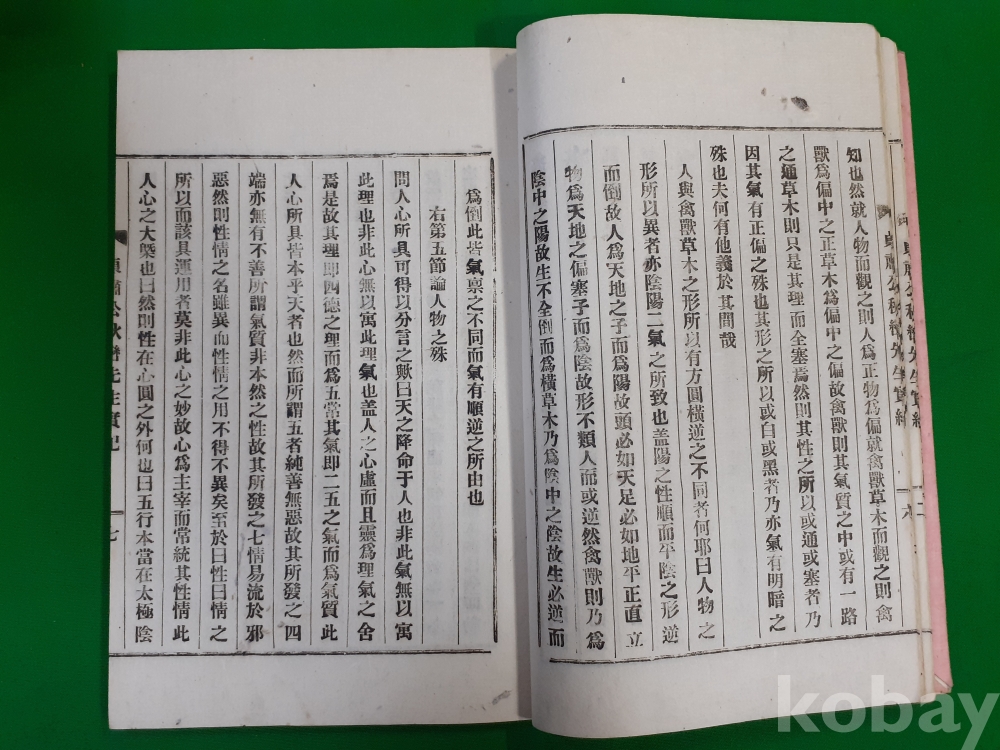 知也然就人物而觀之則人爲正物爲偏就禽獸草木而觀之則禽
獸爲偏中之正草木爲偏中之偏故禽獸則其氣質之中或有一路
之通草木則只是其理而全塞焉然則其性之所以或通或塞者乃
因其氣有正偏之殊也其形之所以或白或黑者乃亦氣有明暗之
殊也夫何有他義於其間哉
人與禽獸草木之形所以有方圓橫逆之不同者何耶曰人物之
形所以異者亦陰陽二氣之所致也盖陽之性順而平陰之形逆
而倒故人爲天地之子而爲陽故頭必如天足必如地平正直立
物爲天地之偏塞子而爲陰故形不類人而或逆然禽獸則乃爲
陰中之陽故生不全倒而爲橫草木乃爲陰中之陰故生必逆而
爲倒此皆氣禀之不同而氣有順逆之所由也
右第五節論人物之殊
問人心所具可得以分言之歟曰天之降命于人也非此氣無以寓
此理也非此心無以寓此理氣也盖人之心虛而且靈爲理氣之舍
焉是故其理即四德之理而爲五常其氣即二五之氣而爲氣質此
人心所具皆本乎天者也然而所謂五者純善無惡故其所發之四
端亦無有不善所謂氣質非本然之性故其所發之七情易流於邪
惡然則性情之名雖異而性情之用不得不異矣至於曰性曰情之
所以而該具運用者莫非此心之妙故心爲主宰而常統其性情此
人心之大槩也曰然則性在心圓之外何也曰五行本當在太極陰
七
六
kobay